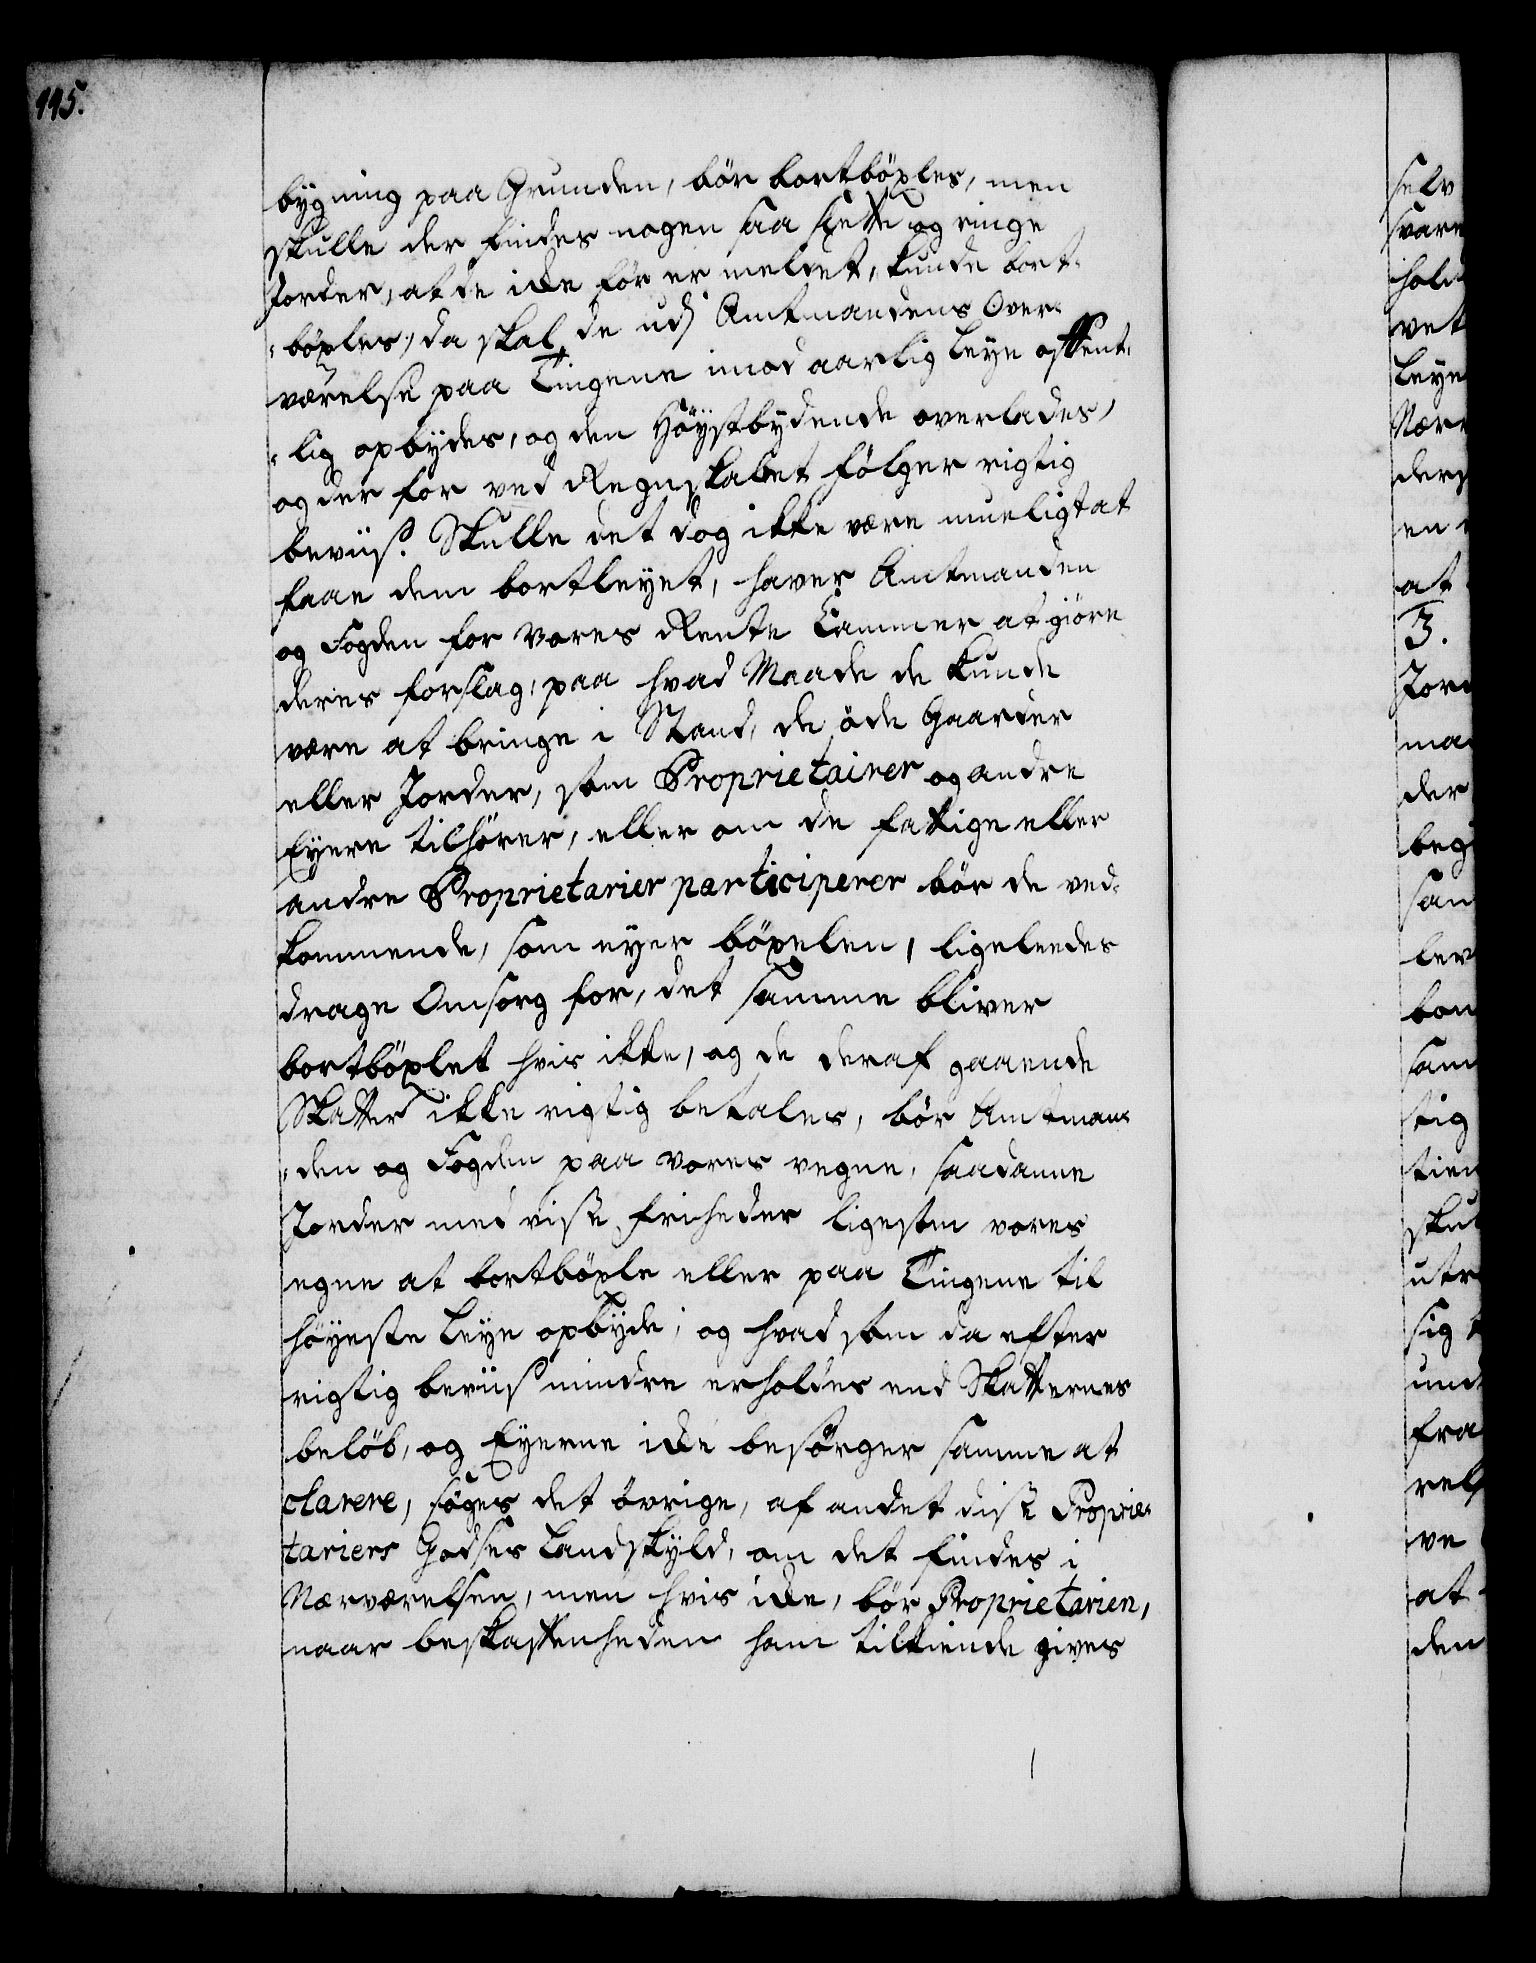 115.
bygning paa Grunden, bör bortböxles, men
skulle der findes nogen saa slette og ringe
Jorder, at de icke för er meldet, kunde bort-
böxles, da skal de udj Amtmandens Over-
værelse paa Tingene imod aarlig Leye offent-
lig opbydes, og den Höystbydende overlades,
og der for ved Regnskabet fölger rigtig
beviis. Skulle det dog ikke være mueligt at
faae dem bortleyet, haver Amtmanden
og Fogden for Vores Rente Cammer at giöre
deres forslag, paa hvad Maade de kunde
være at bringe i Stand, de öde Gaarder
eller Jorder, som Proprietairer og andre
Eyere tilhörer, eller om de fattige eller
andre Proprietarier participerer bör de ved-
kommende, som eyer böxelen, ligeleedes
drage Omsorg for, det samme bliver
bortböxlet hvis ikke, og de deraf gaaende
Skatter ikke rigtig betales, bör Amtman-
den og Fogden paa Vores vegne, saadanne
Jorder med visse friheder ligesom vores
egne at bortböxle eller paa Tingene til
höyeste Leye opbyde; og hvad som da efter
rigtig beviis mindre erholdes end Skatternes
belöb, og Eyerne icke besörger samme at
clarere, söges det övrige, af andet disse Proprie-
tariers Godses Landskyld, om det findes i
Nærværelsen, men hvis icke, bör Proprietarien,
naar beskaffenheden ham tilkiende gives
selv
svare
hold
vet
Leye
Nær
ders
en
at
3.
Jord
ma
der
beg
san
lev
bon
sam
tig
tien
skul
utr
sig
und
fra
rels
ve
at
den